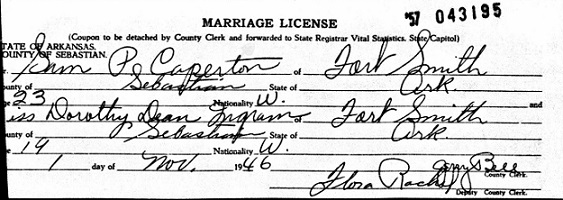 '57 043195
MARRIAGE LICENSE
(Coupon to be detached by County Clerk and forwarded to State Registrar Vital Statistics, State Capitol)
STATE OF ARKANSAS,
COUNTY OF SEBASTIAN.
P. Caperton of Fort Smith
County of Sebastian State of Ark.
23 Nationality W. and
iss Dorothy Dean Ingram of Fort Smith
County of Sebastian State of Ark.
19 Nationality W.
1 day of Nov. 1946
Bell
County Clerk.
Flora
Deputy County Clerk.